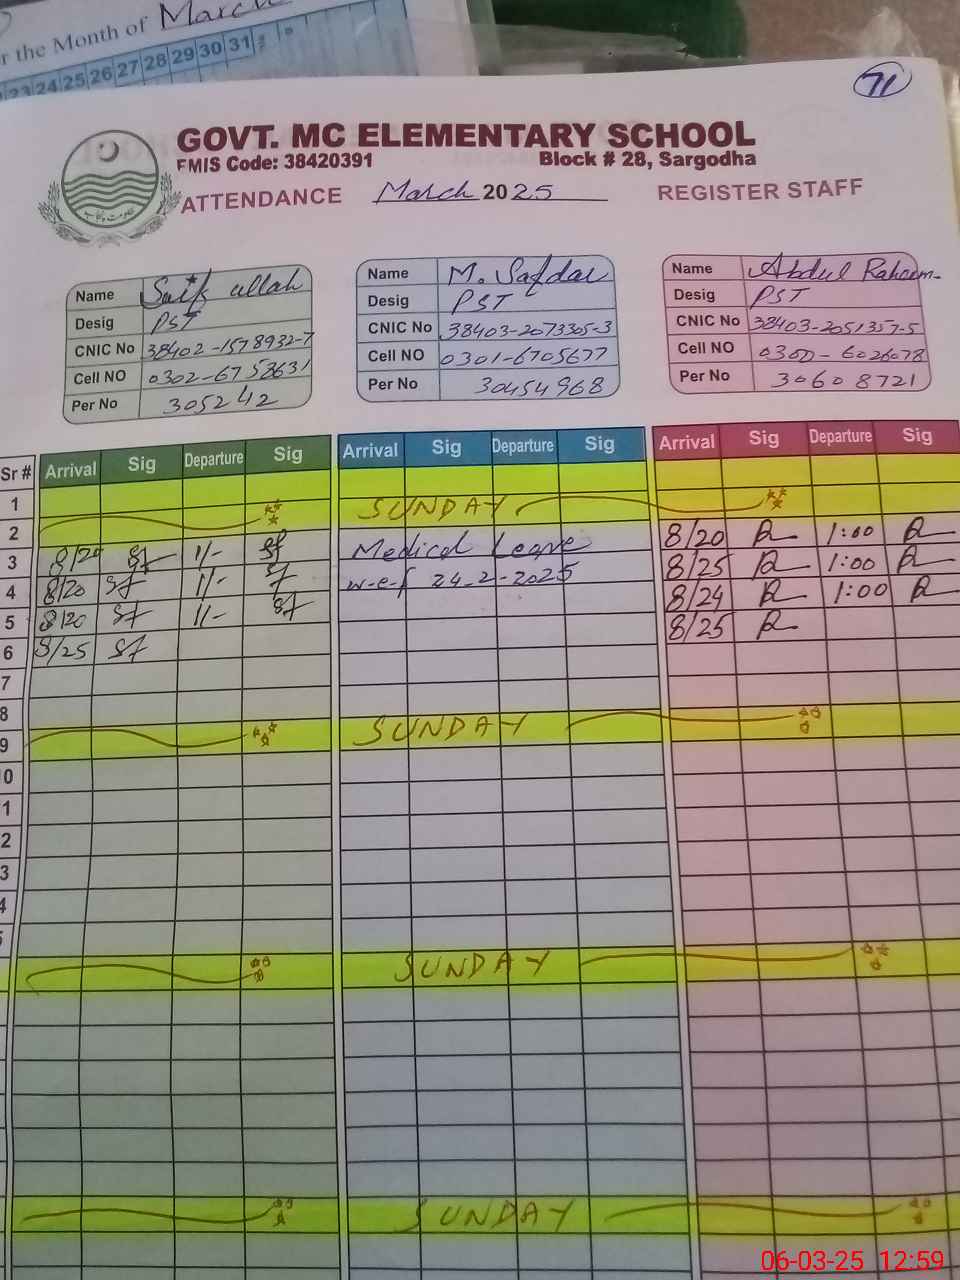 r the Month of March
23 24 25 26 27 28 29 30 31
71
GOVT. MC ELEMENTARY SCHOOL
EMIS Code: 38420391 Block # 28, Sargodha
ATTENDANCE March 2025 REGISTER STAFF
Name Saif ullah
Desig PST
CNIC No 38402-1578932-7
Cell NO 0302-6753631
Per No 305242
Name M. Safdar
Desig PST
CNIC No 38403-2073305-3
Cell NO 0301-6705677
Per No 30454968
Name Abdul Raheem
Desig PST
CNIC No 38403-2051357-5
Cell NO 0300-6026078
Per No 30608721
Sr # Arrival Sig Departure Sig Arrival Sig Departure Sig Arrival Sig Departure Sig
1
2 SUNDAY
3 8/20 1/- Medical Leave 8/20 1:00
4 8/20 1/- w-e-f 24-2-2025 8/25 1:00
5 8/20 1/- 8/24 1:00
6 8/25 8/25
7
8
9 SUNDAY
0
1
2
3
4
5
SUNDAY
SUNDAY
06-03-25 12:59